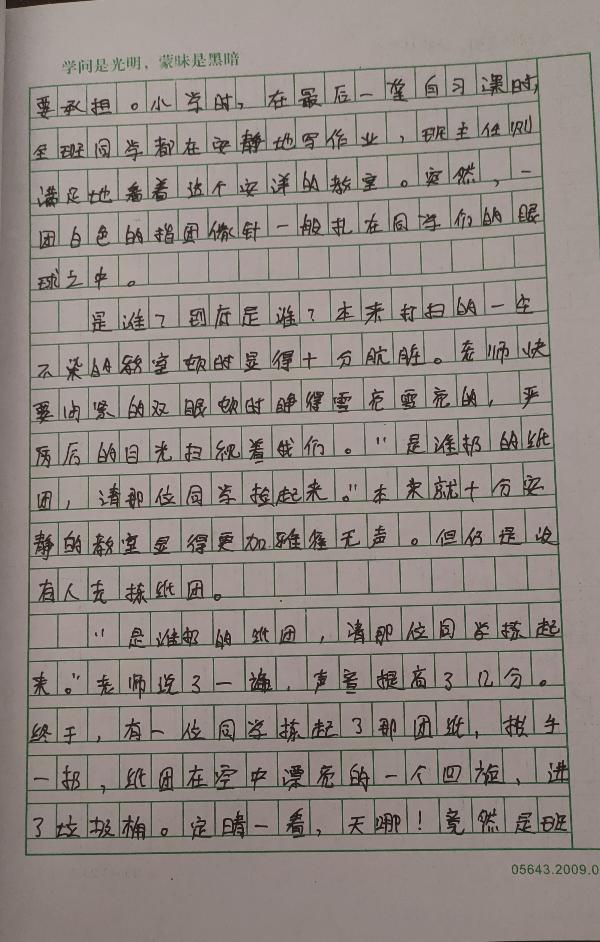 学问是光明，蒙昧是黑暗
要承担。小学时，在最后一堂自习课时，
全班同学都在安静地写作业，班主任则
满足地看着这个安详的教室。突然，一
团白色的指团像针一般扎在同学们的眼
球之中。
是谁？到底是谁？本来打扫的一尘
不染的教室顿时显得十分肮脏。老师快
要闭紧的双眼顿时睁得雪亮雪亮的，严
厉后的目光扫视着我们。"是谁扔的纸
团，请那位同学捡起来。"本来就十分安
静的教室显得更加鸦雀无声。但仍是没
有人去拣纸团。
"是谁扔的纸团，请那位同学拣起
来。"老师说了一遍，声音提高了几分。
终于，有一位同学拣起了那团纸，拔手
一扔，纸团在空中漂亮的一个回旋，进
了垃圾桶。定睛一看，天哪！竟然是班
05643.2009.0